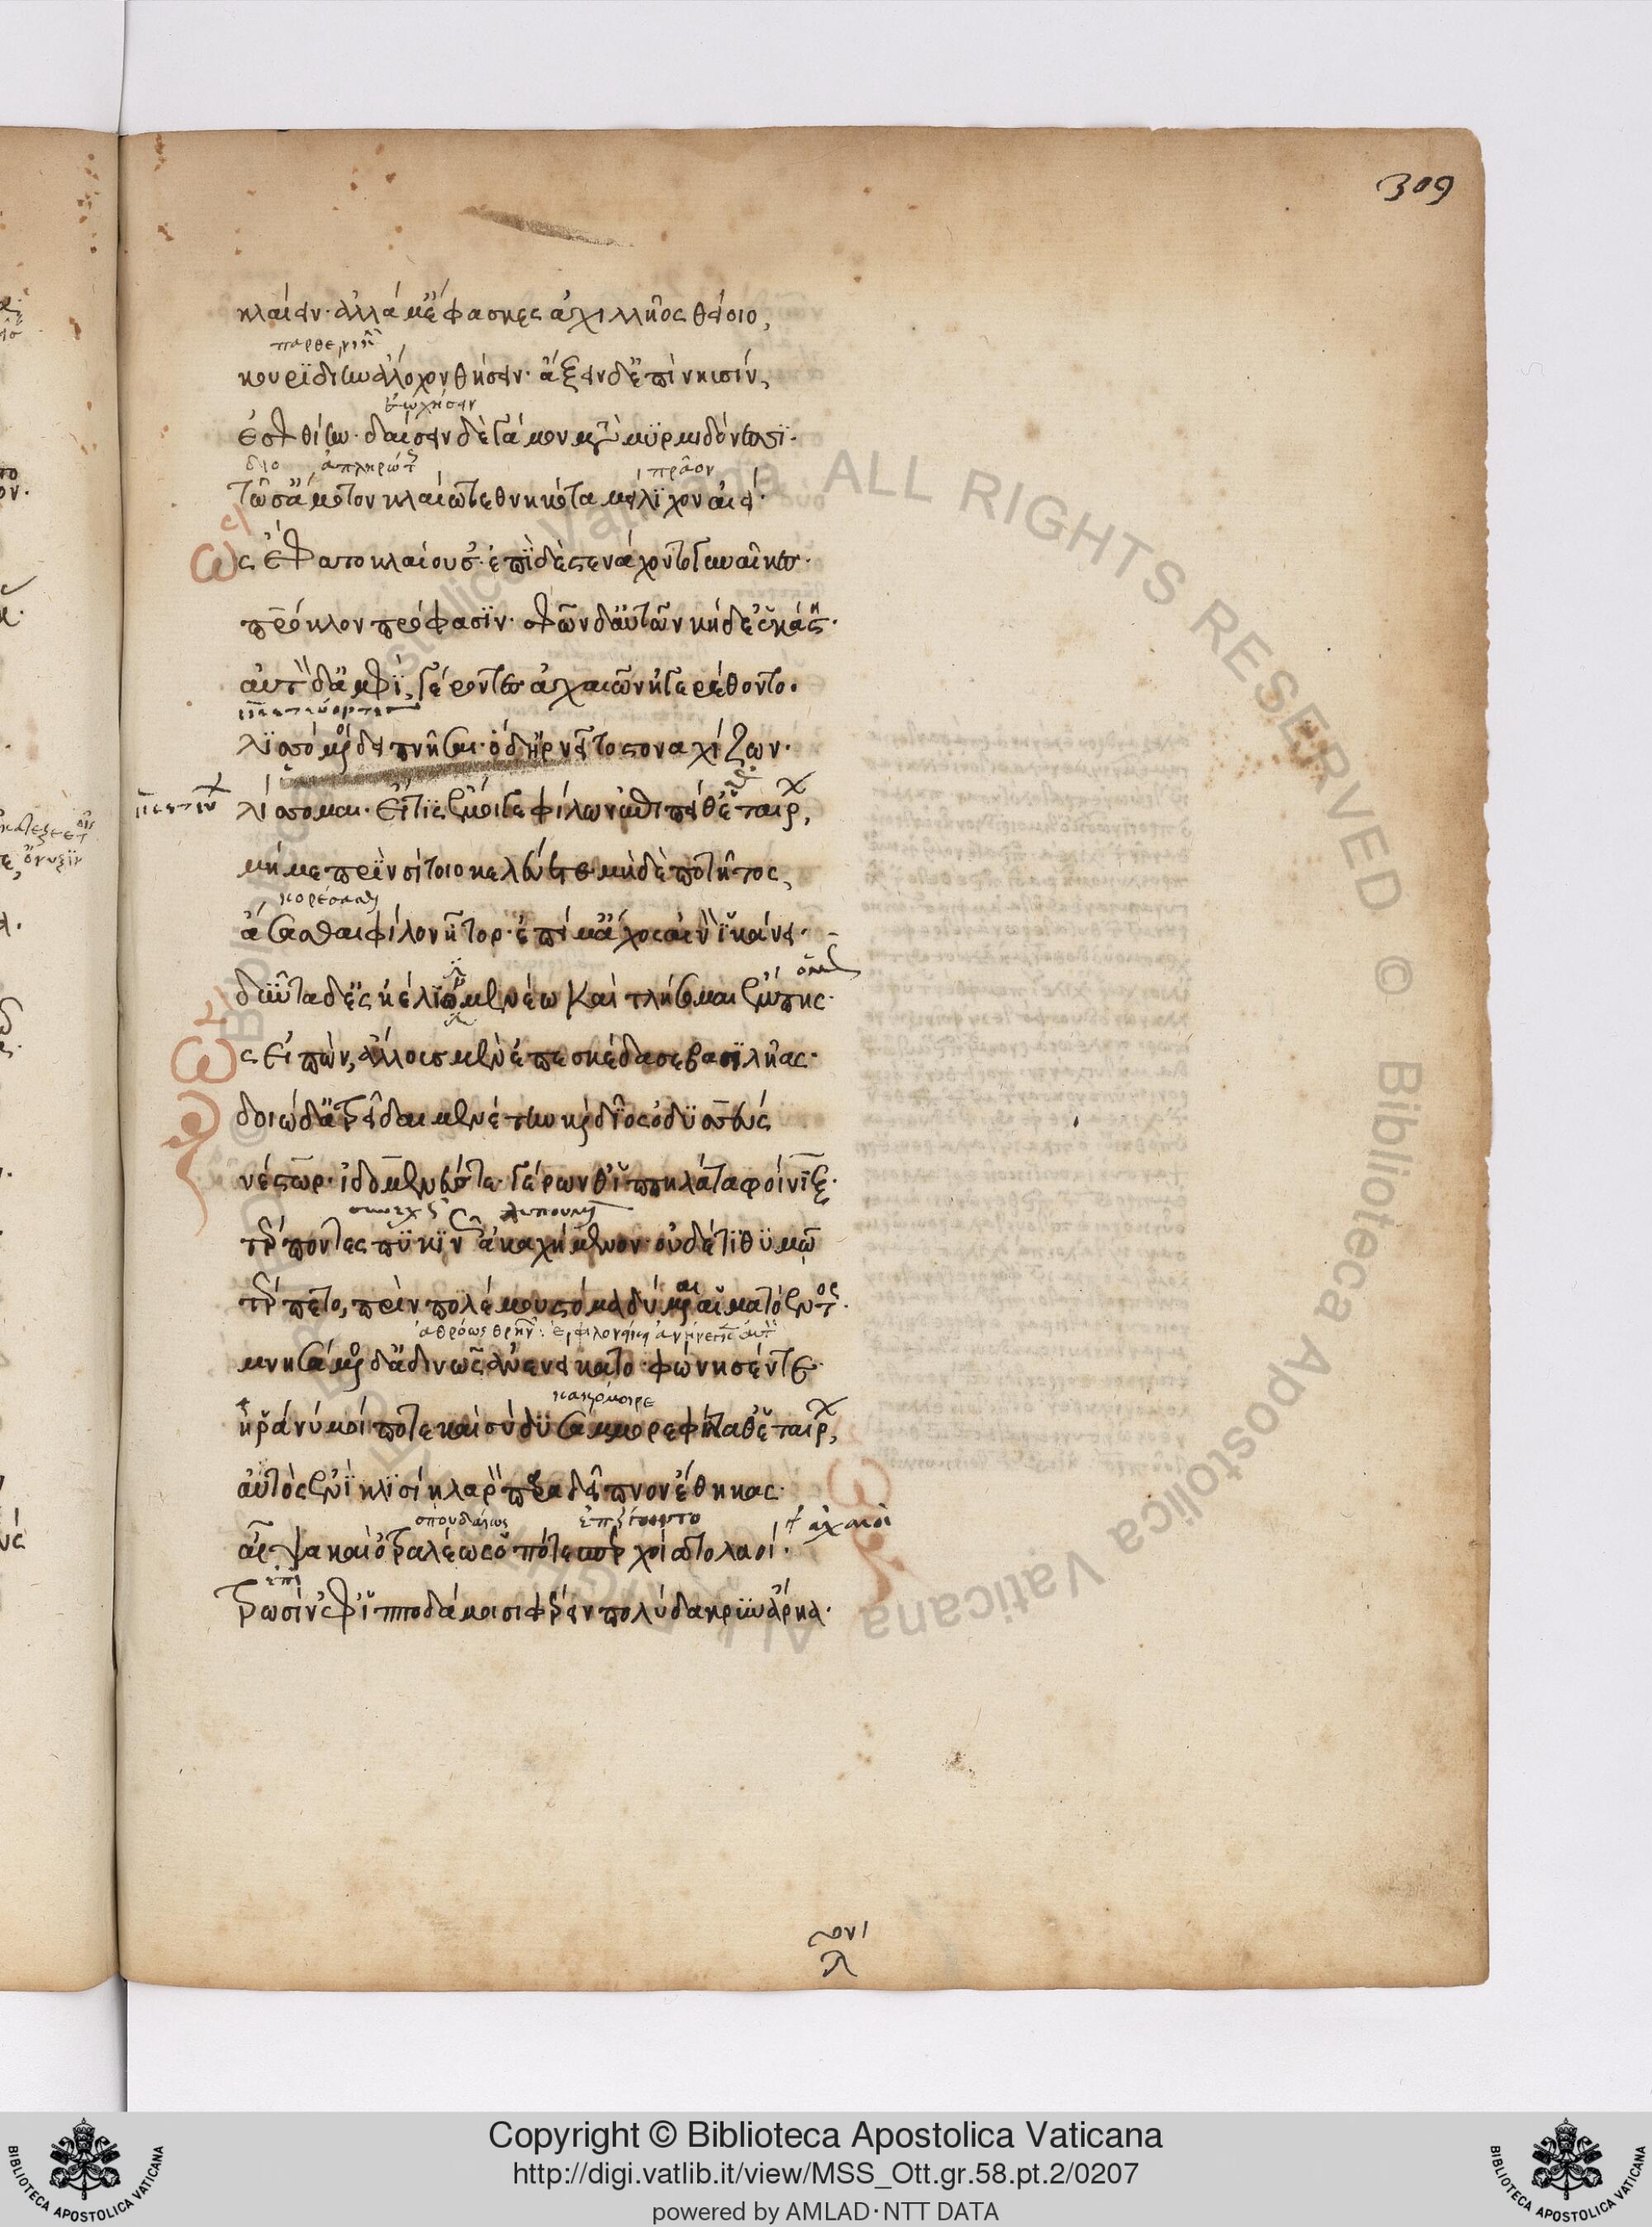 309
κλαίειν· ἀλλά μ' ἔφασκες ἀχιλλῆος θείοιο,
κουριδίην ἄλοχον θήσειν· ἄξειν δ' ἐπὶ νηυσίν,
ἐς φθίην· δαίσειν δὲ γάμον μετὰ μυρμιδόνεσσι·
διο
πρᾶον
τῶ σ' ἄμοτον κλαίω τεθνηκότα μείλιχον αἰεί·
ὣς ἔφατο κλαίουσ'· ἐπὶ δὲ στενάχοντο γυναῖκες·
πάτροκλον πρόφασιν· σφῶν δ' αὐτῶν κήδε' ἑκάστη·
αὐτὸν δ' ἀμφὶ, γέροντες ἀχαιῶν ἠγερέθοντο·
λισσόμενοι δειπνῆσαι· ὁ δ' ἠρνεῖτο στοναχίζων·
λίσσομαι· εἴ τις ἔμοιγε φίλων ἐπιπείθεθ' ἑταίρων,
μή με πρὶν σίτοιο κελεύετε μὴ δὲ ποτῆτος,
κορέσαι
ἄσασθαι φίλον ἦτορ· ἐπεί μ' ἄχος αἰνὸν ἱκάνει·
δύντα δ' ἐς ἠέλιον μενέω καὶ τλήσομαι ἔμπης·
ὣς εἰπὼν, ἄλλους μὲν ἀπεσκέδασε βασιλῆας·
δοιὼ δ' ἀτρείδα μενέτην καὶ δῖος ὀδυσσεύς
νέστωρ· ἰδομενεύς τε· γέρων θ' ἱππηλάτα φοίνιξ·
τέρποντες πυκινῶς ἀκαχήμενον· οὐδέ τι θυμῷ
τέρπετο, πρὶν πολέμου στόμα δύμεναι αἱματόεντος·
μνησάμενος δ' ἁδινῶς ἀνενείκατο φώνησέν τε·
κακόμοιρε
ἦ ῥά νύ μοί ποτε καὶ σὺ δυσάμμορε φίλταθ' ἑταίρων,
αὐτὸς ἐνὶ κλισίῃ λαρὸν παρὰ δεῖπνον ἔθηκας·
σπουδαίως
ἀχαιοὶ
αἶψα καὶ ὀτραλέως ὁπότε σπερχοίατο λαοί·
ἐπὶ
τρωσὶν ἐφ' ἱπποδάμοισι φέρειν πολύδακρυν ἄρηα·
Copyright © Biblioteca Apostolica Vaticana
http://digi.vatlib.it/view/MSS_Ott.gr.58.pt.2/0207
powered by AMLAD·NTT DATA